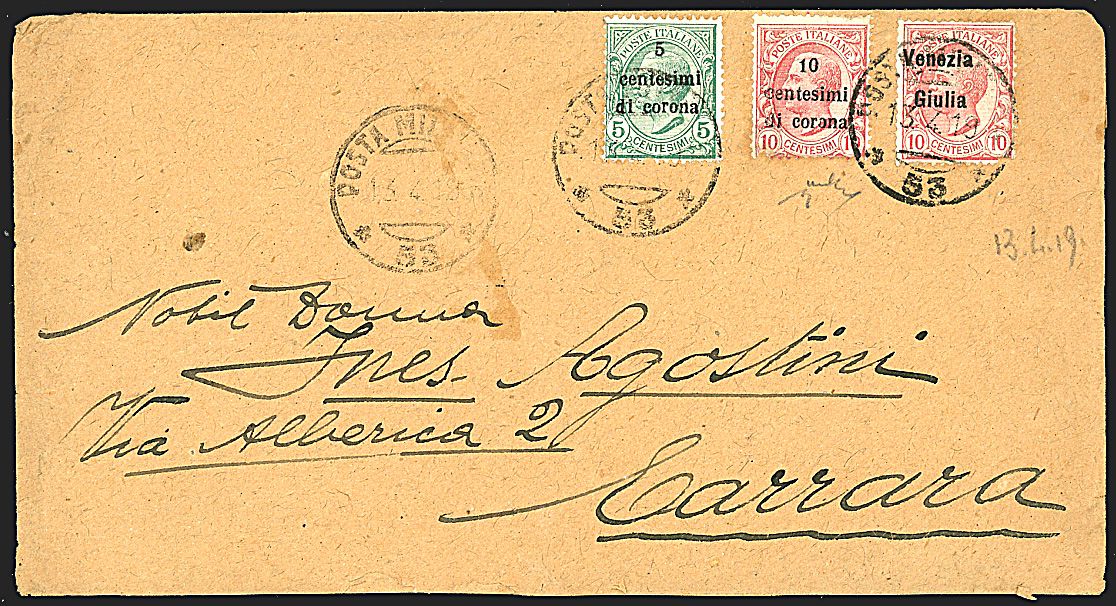 POSTE ITALIANE
5
centesimi
di corona
5 CENTESIMI 5
POSTE ITALIANE
10
centesimi
di corona
10 CENTESIMI 10
POSTE ITALIANE
Venezia
Giulia
10 CENTESIMI 10
POSTA MIL
13.4.
53
POST
53
POST
13.4.19
53
13.4.19.
Nobil Donna
Ines Agostini
Via Alberica 2
Carrara